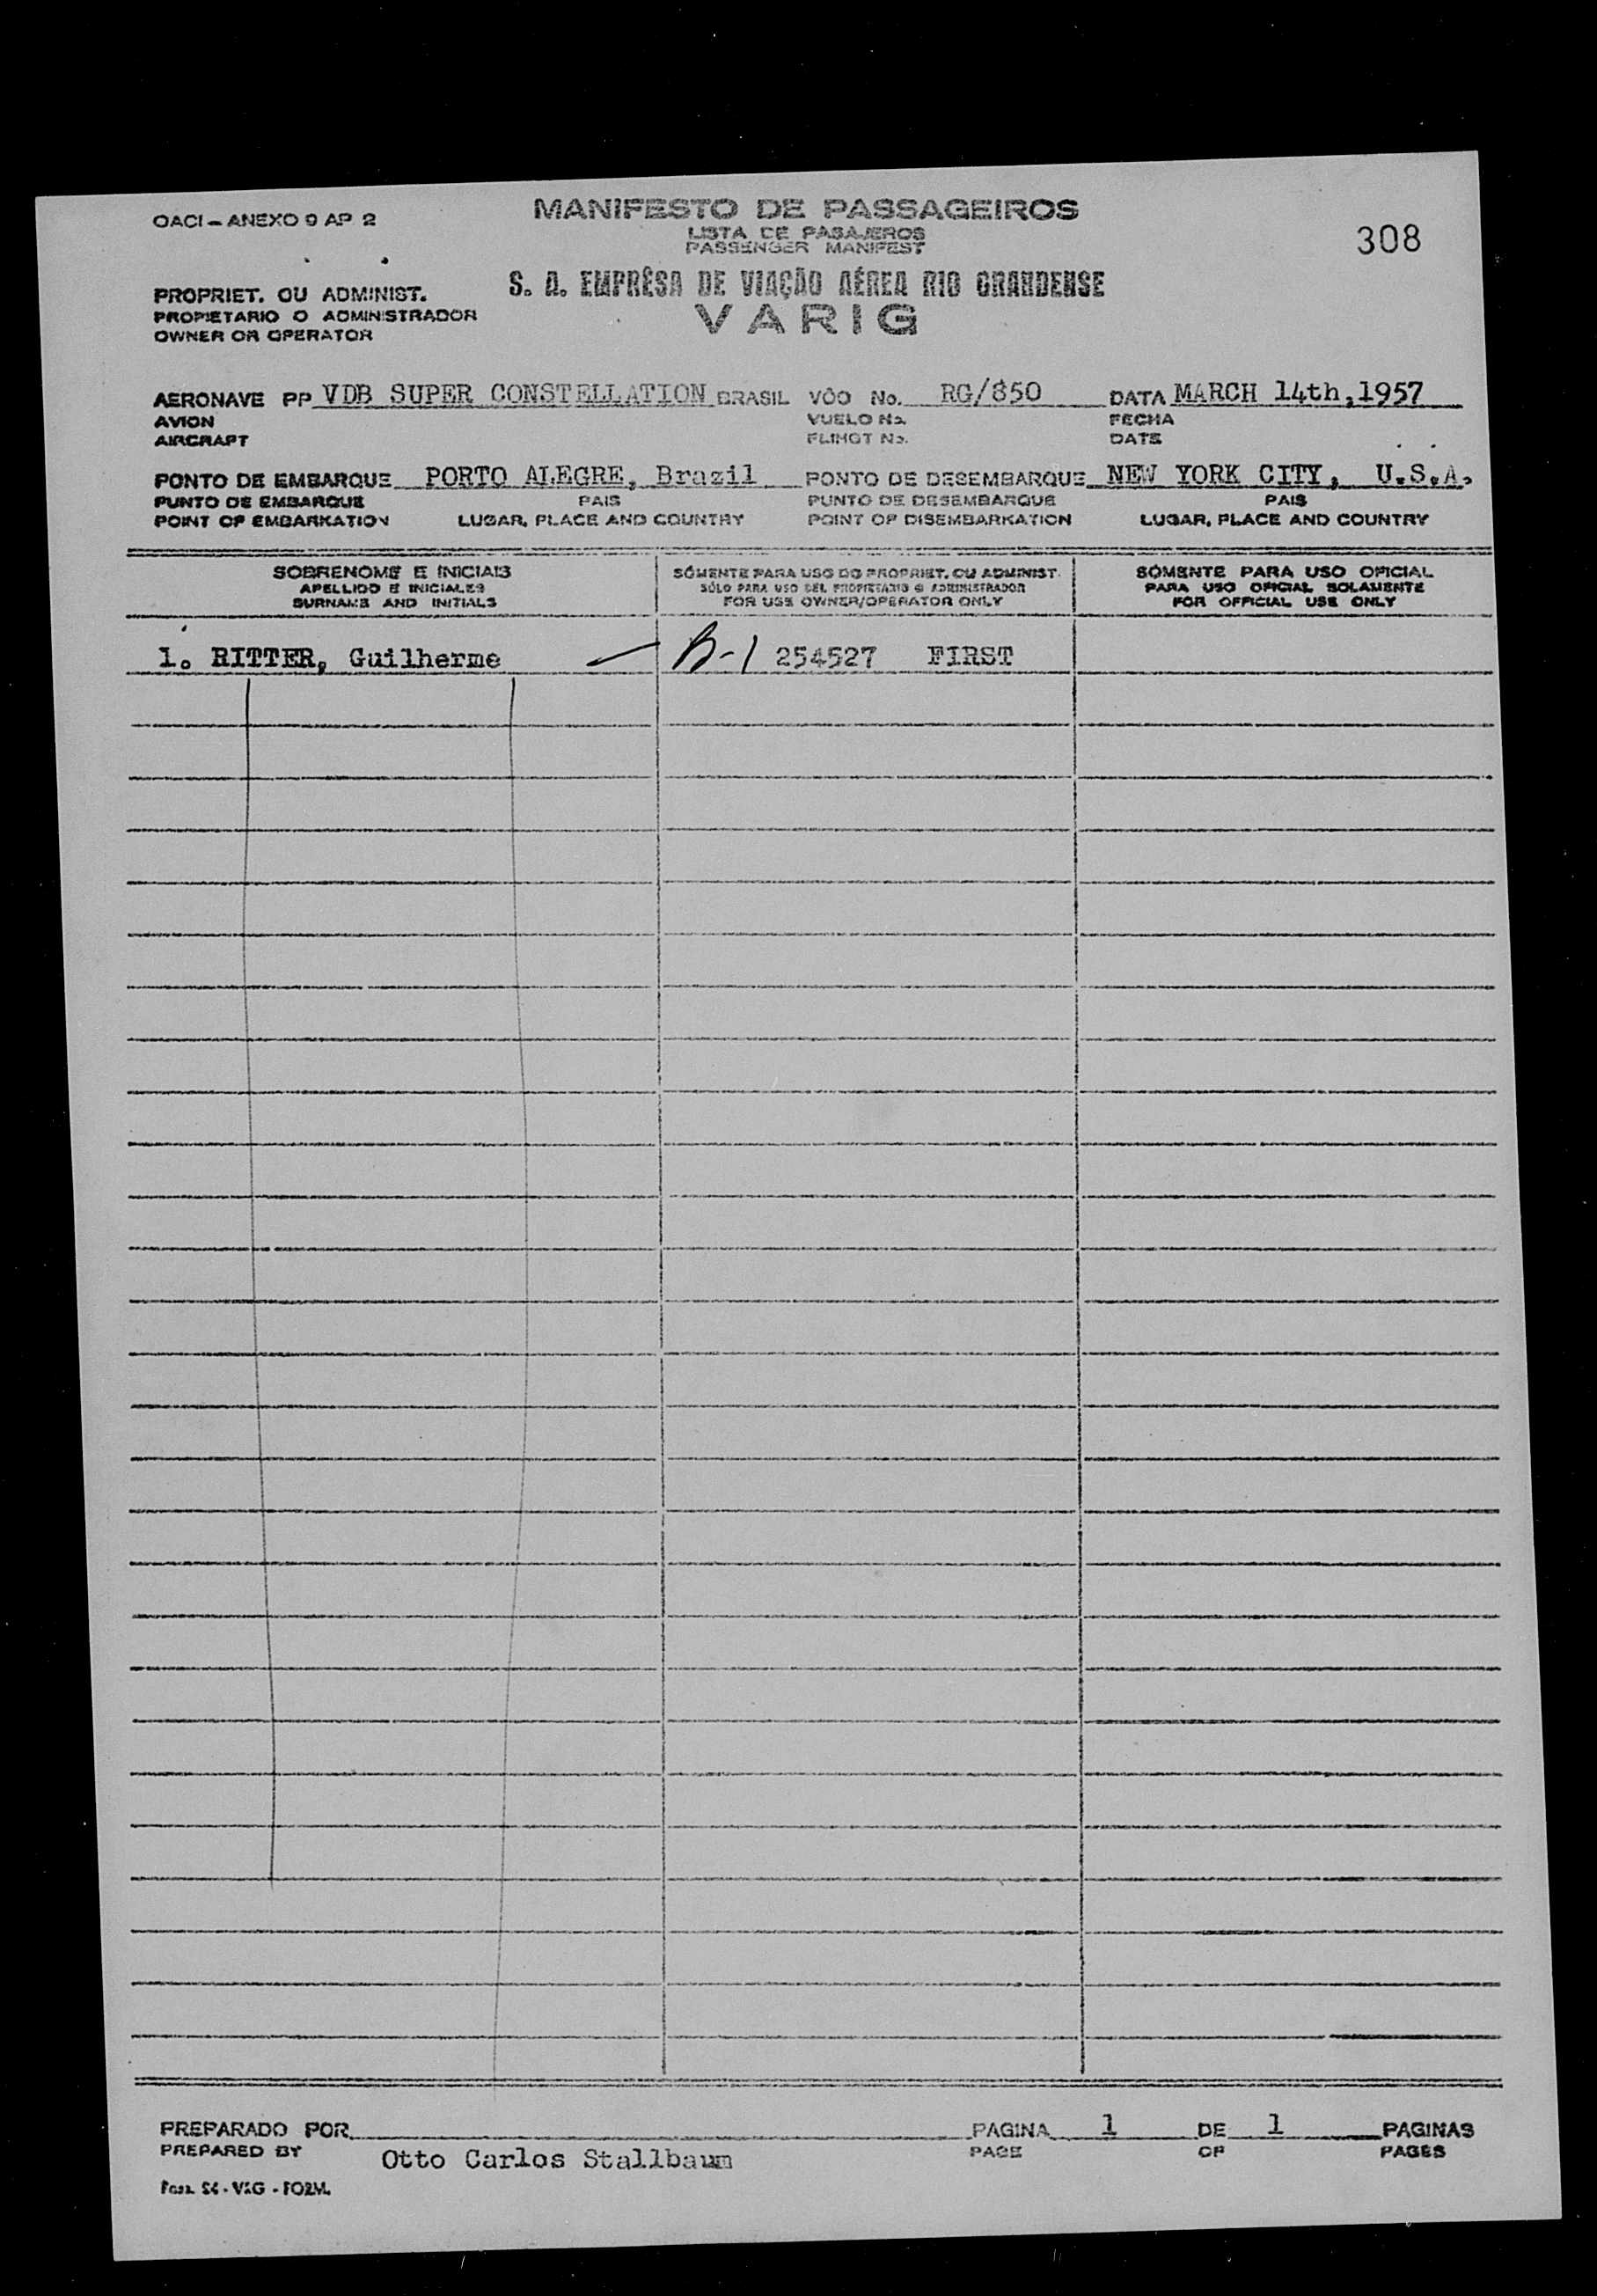 OACI – ANEXO 9 AP 2
MANIFESTO DE PASSAGEIROS
LISTA DE PASAJEROS
PASSENGER MANIFEST
308
S. A. EMPRÊSA DE VIAÇÃO AÉREA RIO GRANDENSE
VARIG
PROPRIET. OU ADMINIST.
PROPIETARIO O ADMINISTRADOR
OWNER OR OPERATOR
AERONAVE PP VDB SUPER CONSTELLATION BRASIL VÔO No. RG/850 DATA MARCH 14th,1957
AVION VUELO No. FECHA
AIRCRAFT FLIHGT No. DATE
PONTO DE EMBARQUE PORTO ALEGRE, Brazil PONTO DE DESEMBARQUE NEW YORK CITY, U.S.A.
PUNTO DE EMBARQUE PAIS PUNTO DE DESEMBARQUE PAIS
POINT OF EMBARKATION LUGAR, PLACE AND COUNTRY POINT OF DISEMBARKATION LUGAR, PLACE AND COUNTRY
SOBRENOME E INICIAIS SÓMENTE PARA USO DO PROPRIET. OU ADMINIST. SÓMENTE PARA USO OFICIAL
APELLIDO E INICIALES SÓLO PARA USO DEL PROPIETARIO O ADMINISTRADOR PARA USO OFICIAL SOLAMENTE
SURNAME AND INITIALS FOR USE OWNER/OPERATOR ONLY FOR OFFICIAL USE ONLY
1. RITTER, Guilherme B-1 254527 FIRST
PREPARADO POR PAGINA 1 DE 1 PAGINAS
PREPARED BY Otto Carlos Stallbaum PAGE OF PAGES